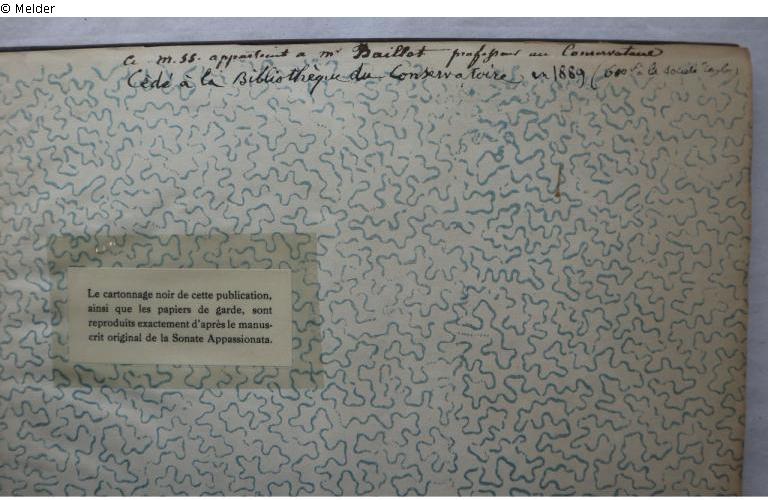 © Melder
Ce m.ss. appartient a mr Baillot professeur au Conservatoire
Cédé à la Bibliothèque du Conservatoire en 1889 (600f à la société Taylor)
Le cartonnage noir de cette publication,
ainsi que les papiers de garde, sont
reproduits exactement d'après le manus-
crit original de la Sonate Appassionata.